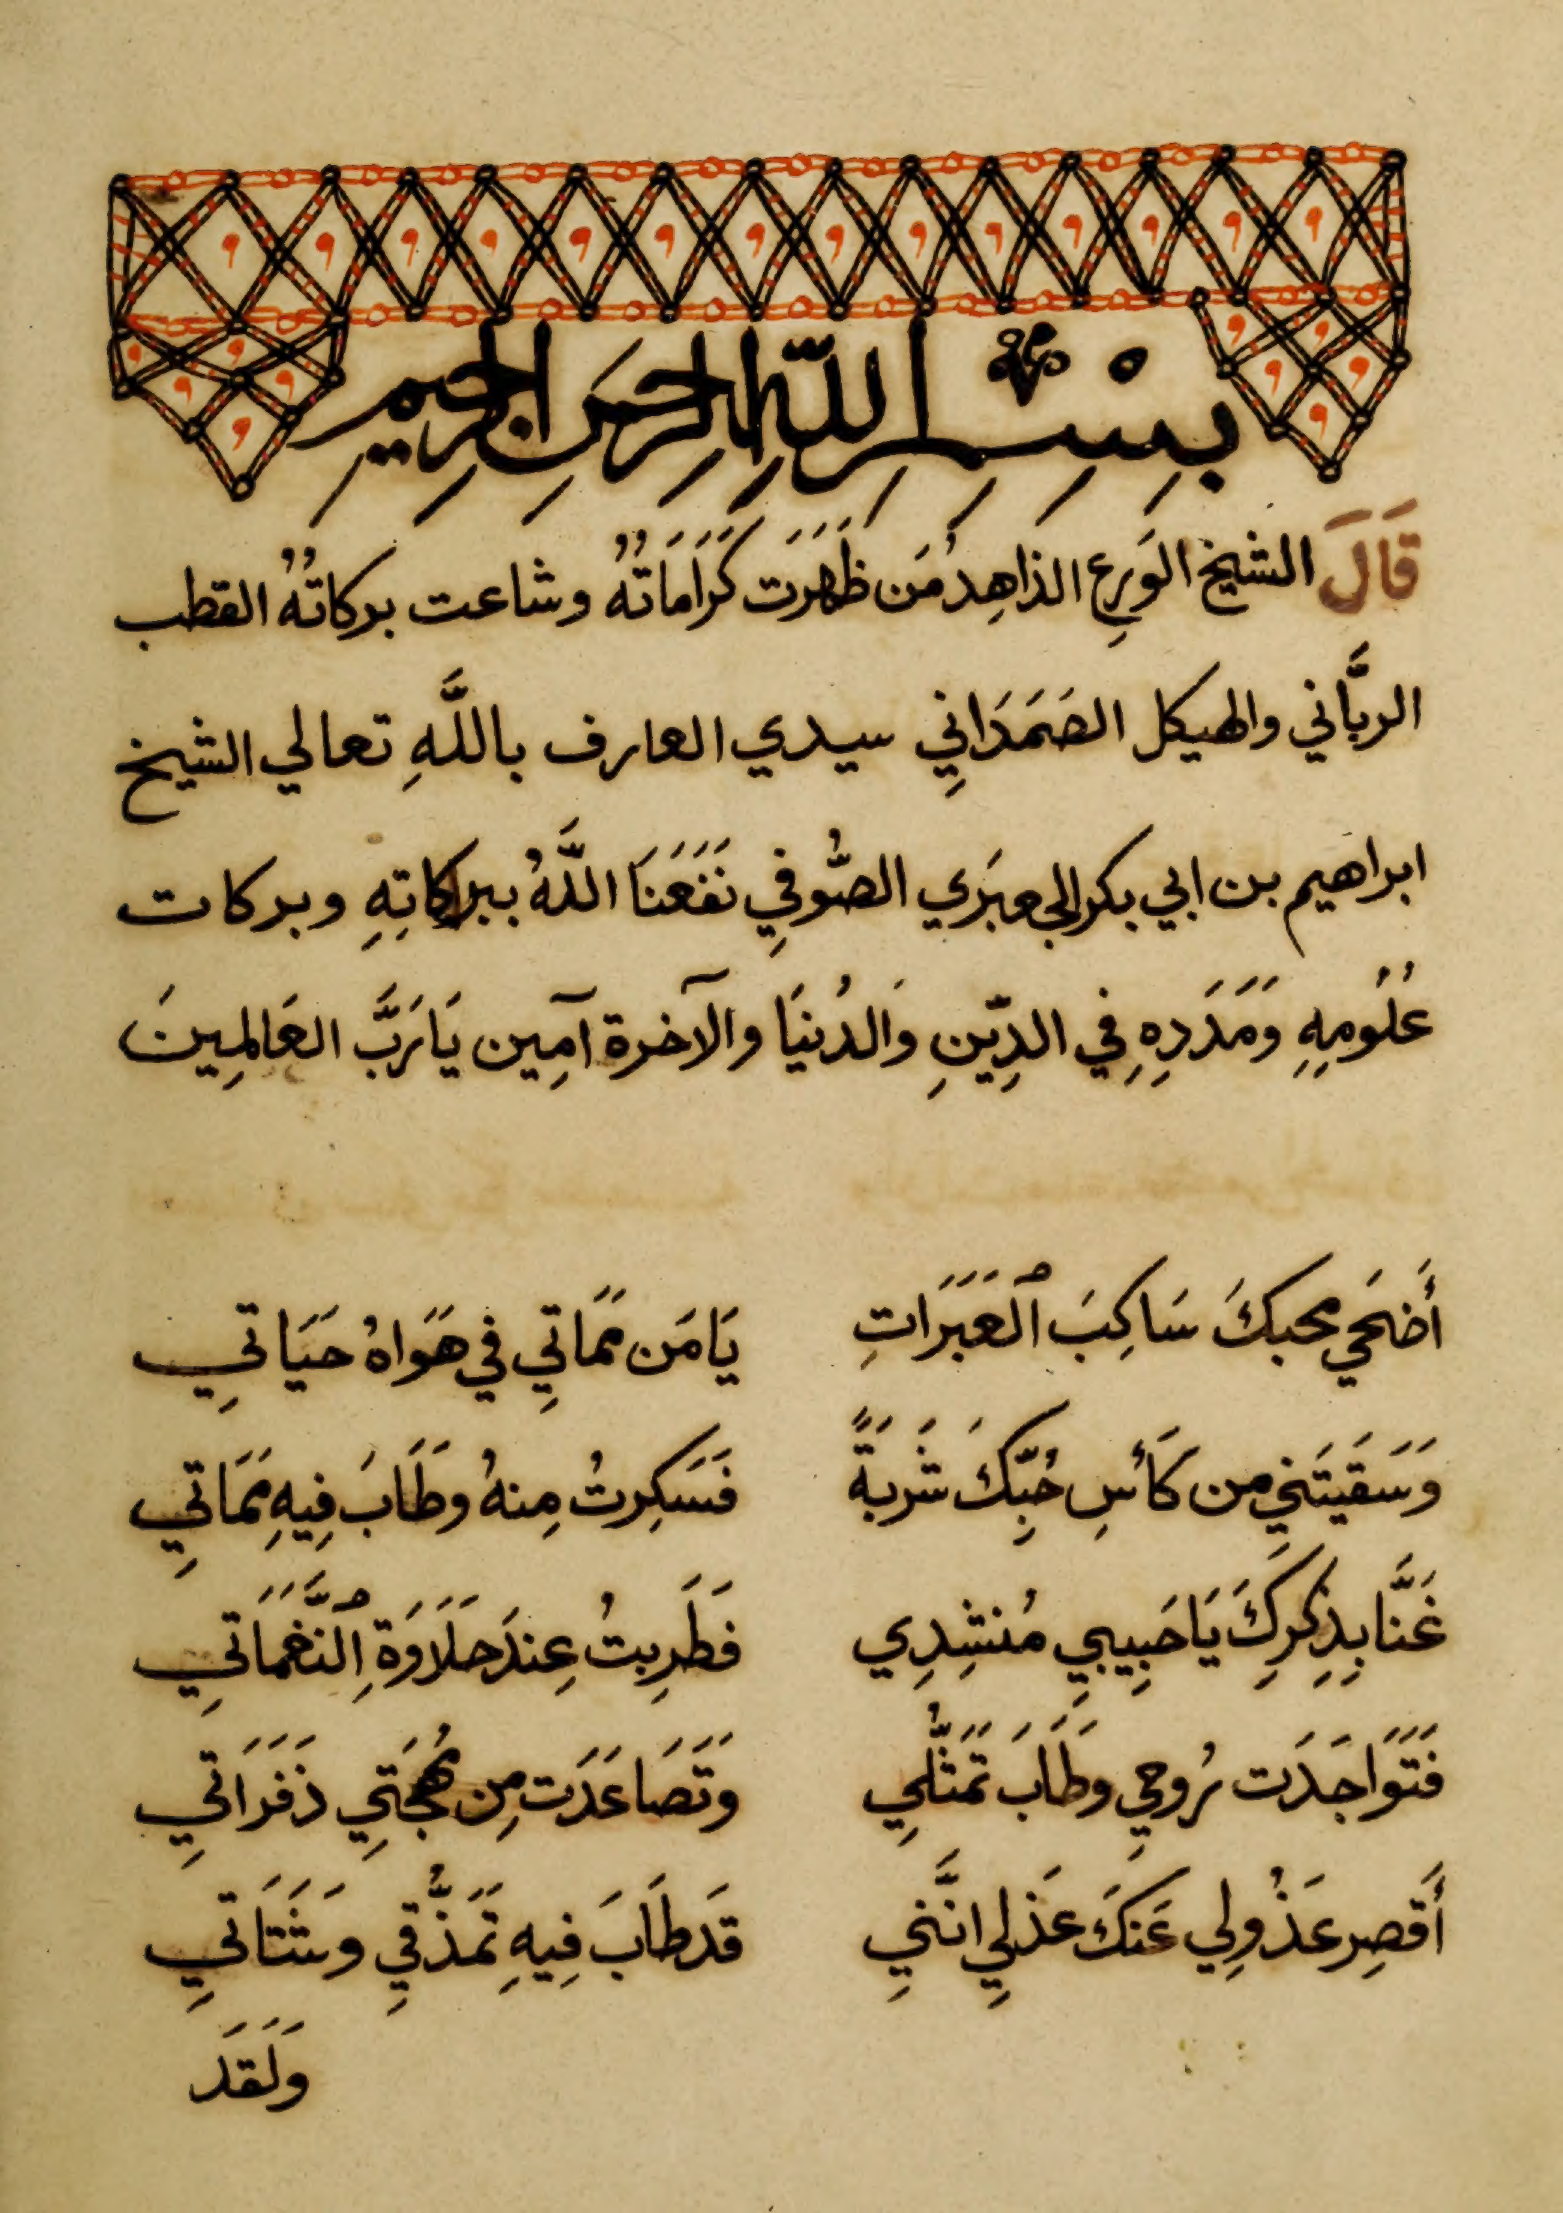 بِسْمِ اللهِ الرحمَنِ الرحِيمِ
قَالَ الشيخ الوَرِع الذاهِدُ مَن ظَهَرَت كَرَامَاتُهُ وشاعت بركاتُهُ القطب
الربَّاني والهيكل الصَمَدَانِي سيدي العارف باللَّهِ تعالي الشيخ
ابراهيم بن ابي بكر الصُّوفِي نَفَعَنَا اللَّهُ ببركاتِهِ وبركات
عُلُومِهِ وَمَدَدِهِ فِي الدِّينِ وَالدُنيَا والآخرة آمِين يَا رَبَّ العَالمِينَ
أَضحَي محبكَ سَاكِبَ ٱلعَبَرَاتِ يَا مَن مَمَاتِي في هَوَاهُ حَيَاتِي
وَسَقَيتَنِي من كَأسِ حُبِّكَ شَربَةً فَسَكِرتُ مِنهُ وطَابَ فِيهِ مَمَاتِي
غَنَّا بِذِكرِكَ يَا حَبِيبِي مُنشِدِي فَطَرِبتُ عِندَ حَلَاوَةِ ٱلنَّغَمَاتِي
فَتَوَاجَدَت رُوحِي وطَابَ تَمَثُّلِي وَتَصَاعَدَت مِن مُهجَتِي ذَفَرَاتِي
أَقصِر عَذُولِي عَنكَ عَذلِي انَّنِي قَد طَابَ فِيهِ تَمَذُّقِي وشَتَاتِي
وَلَقَد